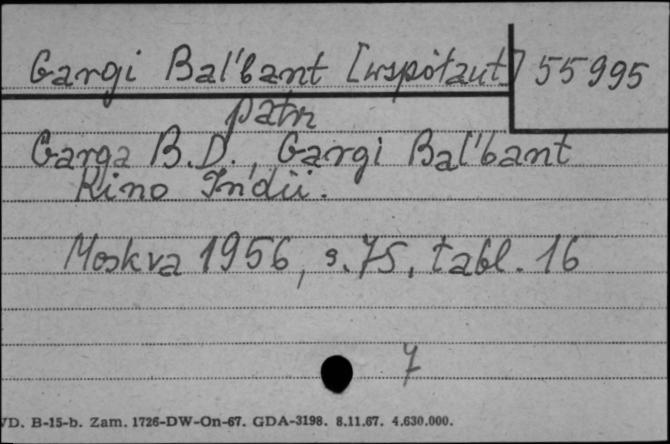 Gargi Bal'bant [współaut] 55995
patrz
Garga B.D., Gargi Bal'bant
Kino Indii.
Moskva 1956, s. 75, tabl. 16
7
VD. B-15-b. Zam. 1726-DW-On-67. GDA-3198. 8.11.67. 4.630.000.